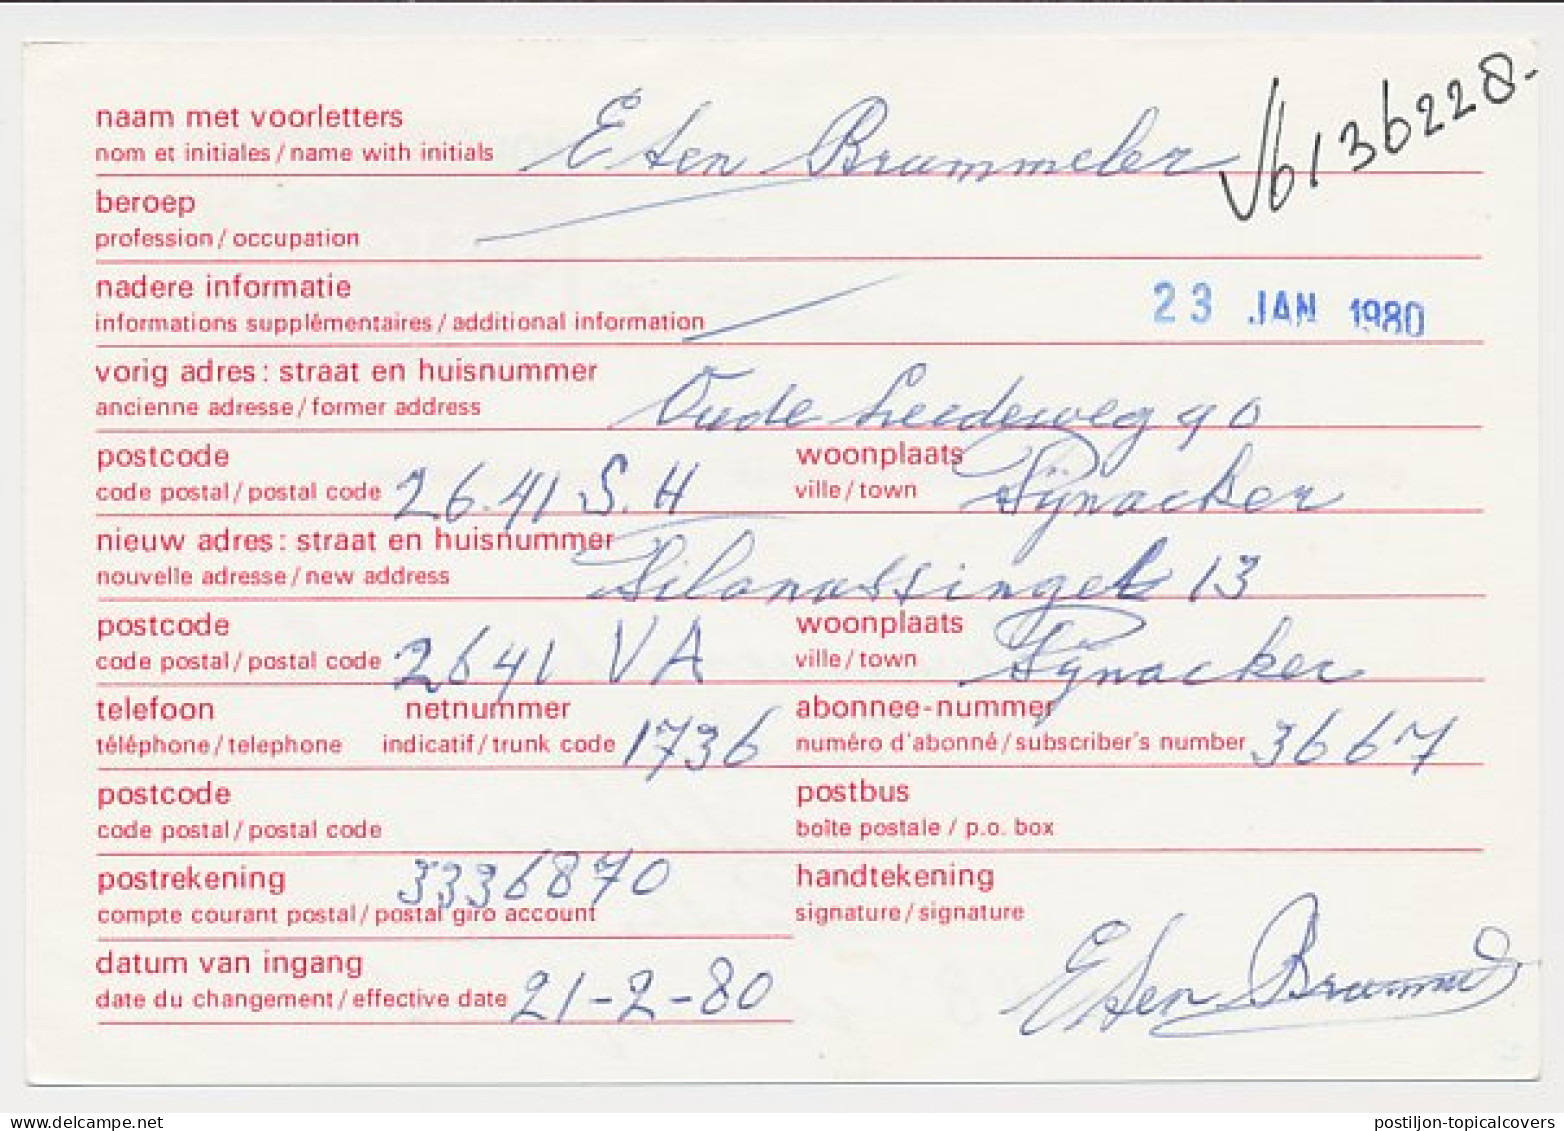 naam met voorletters
nom et initiales / name with initials
E ten Brummeler
V6136228-
beroep
profession / occupation
nadere informatie
informations supplémentaires / additional information
23 JAN 1980
vorig adres: straat en huisnummer
ancienne adresse / former address
Oude Leedeweg 90
postcode
code postal / postal code
2641 S.H
woonplaats
ville / town
Pijnacker
nieuw adres: straat en huisnummer
nouvelle adresse / new address
13
postcode
code postal / postal code
2641 VA
woonplaats
ville / town
Pijnacker
telefoon
téléphone / telephone
netnummer
indicatif / trunk code
1736
abonnee-nummer
numéro d'abonné / subscriber's number
3667
postcode
code postal / postal code
postbus
boîte postale / p.o. box
postrekening
compte courant postal / postal giro account
3336870
handtekening
signature / signature
E ten Brummeler
datum van ingang
date du changement / effective date
21-2-80
www.delcampe.net
postiljon-topicalcovers